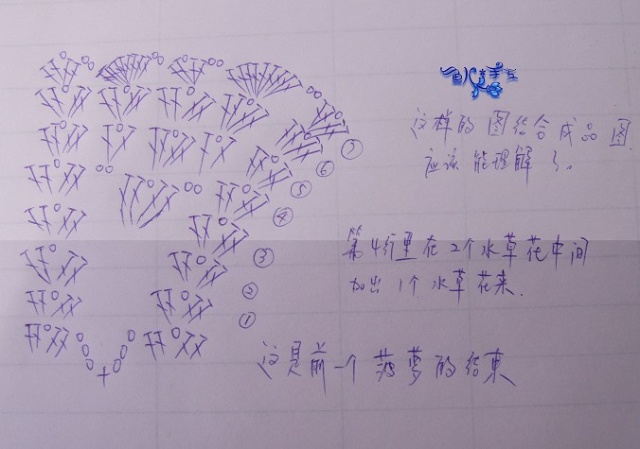 这样的图结合成品图
应该能理解了.
⑦
⑥
⑤
④
第4行里在2个水草花中间
加出1个水草花来.
③
②
①
这是前一个菠萝的结束